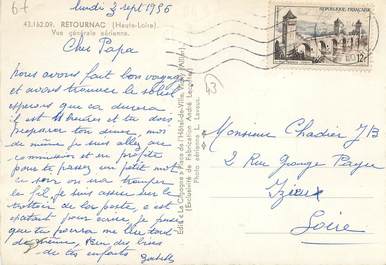 lundi 3 sept 1956
43.162.09. RETOURNAC (Haute-Loire).
Vue générale aérienne.
Cher Papa
nous avons fait bon voyage
et avons trouvé le soleil
espérons que ca durera
il est 11 heures et tu dois
préparer ton diner, moi
de même je suis allée en
commission et en profite
pour te passer un petit mot
le fil, je suis assise sur le
trottoir de la poste, c est
pour écrire, je pense
que tu pourra me lire tout
de même, Reçu des bises
de tes enfants
Edit. "La Cigogne" Place de l'Hôtel-de-Ville,
(Exclusivité de Fabrication André Leconte)
Photo aérienne L. Lavaux.
RÉPUBLIQUE FRANÇAISE
12F
POSTES
43
Monsieur Chadier JB
2 Rue Grange Payre
Izieux
Loire